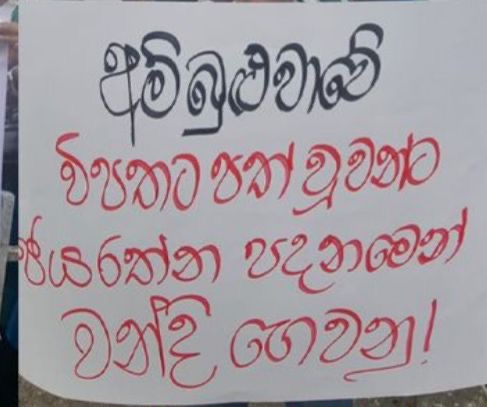 අම්බුළුවාවේ
විපතට පත් වූවන්ට
ජයරත්න පදනමෙන්
වන්දි ගෙවනු!